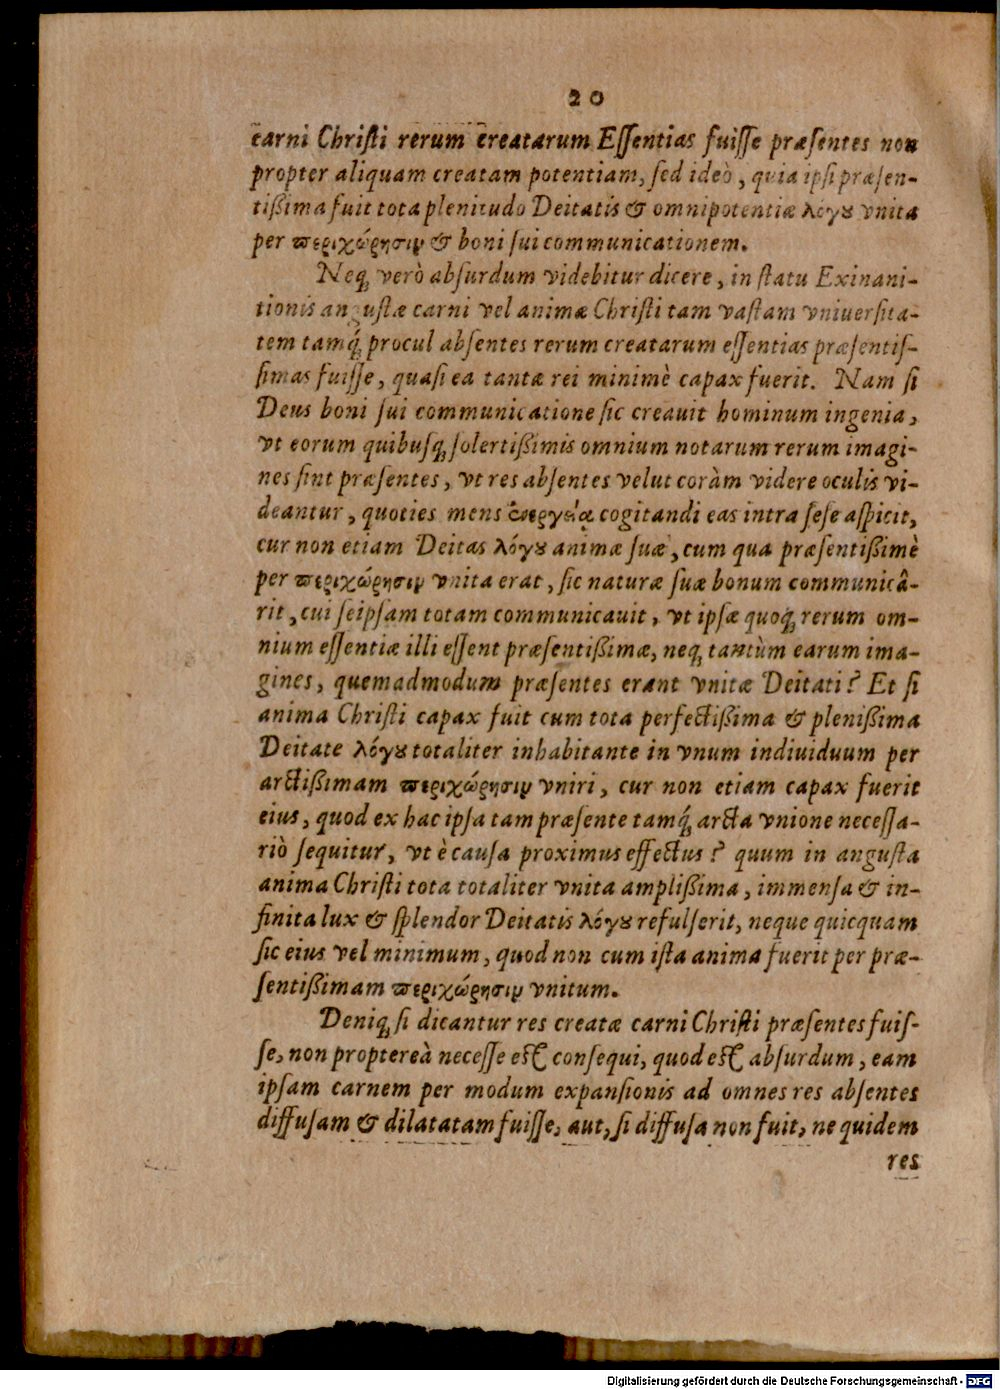 20
carni Chriſti rerum creatarum Eſſentias fuiſſe præſentes non
propter aliquam creatam potentiam, ſed ideò, quia ipſi præſen-
tißima fuit tota plenitudo Deitatis & omnipotentiæ λόγȣ vnita
per περιχώρησιν & boni ſui communicationem.
Neq́ꝫ verò abſurdum videbitur dicere, in ſtatu Exinani-
tionis anguſtæ carni vel animæ Chriſti tam vaſtam vniuerſita-
tem tamq́ꝫ procul abſentes rerum creatarum eſſentias præſentiſ-
ſimas fuiſſe, quaſi ea tantæ rei minimè capax fuerit. Nam ſi
Deus boni ſui communicatione ſic creauit hominum ingenia,
vt eorum quibuſqꝫ ſolertißimis omnium notarum rerum imagi-
nes ſint præſentes, vt res abſentes velut coràm videre oculis vi-
deantur, quoties mens ἐνεργείᾳ cogitandi eas intra ſeſe aſpicit,
cur non etiam Deitas λόγȣ animæ ſuæ, cum qua præſentißimè
per περιχώρησιν vnita erat, ſic naturæ ſuæ bonum communicâ-
rit, cui ſeipſam totam communicauit, vt ipſæ quoq́ꝫ rerum om-
nium eſſentiæ illi eſſent præſentißimæ, neqꝫ tantùm earum ima-
gines, quemadmodum præſentes erant vnitæ Deitati? Et ſi
anima Chriſti capax fuit cum tota perfectißima & pleniſſima
Deitate λόγȣ totaliter inhabitante in vnum indiuiduum per
arctißimam περιχώρησιν vniri, cur non etiam capax fuerit
eius, quod ex hac ipſa tam præſente tamq́ꝫ arcta vnione neceſſa-
riò ſequitur, vt è cauſa proximus effectus? quum in anguſta
anima Chriſti tota totaliter vnita amplißima, immenſa & in-
finita lux & ſplendor Deitatis λόγȣ refulſerit, neque quicquam
ſic eius vel minimum, quod non cum iſta anima fuerit per præ-
ſentißimam περιχώρησιν vnitum.
Deniqꝫ ſi dicantur res creatæ carni Chriſti præſentes fuiſ-
ſe, non proptereà neceſſe eſt conſequi, quod eſt abſurdum, eam
ipſam carnem per modum expanſionis ad omnes res abſentes
diffuſam & dilatatam fuiſſe, aut, ſi diffuſa non fuit, ne quidem
res
Digitalisierung gefördert durch die Deutsche Forschungsgemeinschaft - DFG